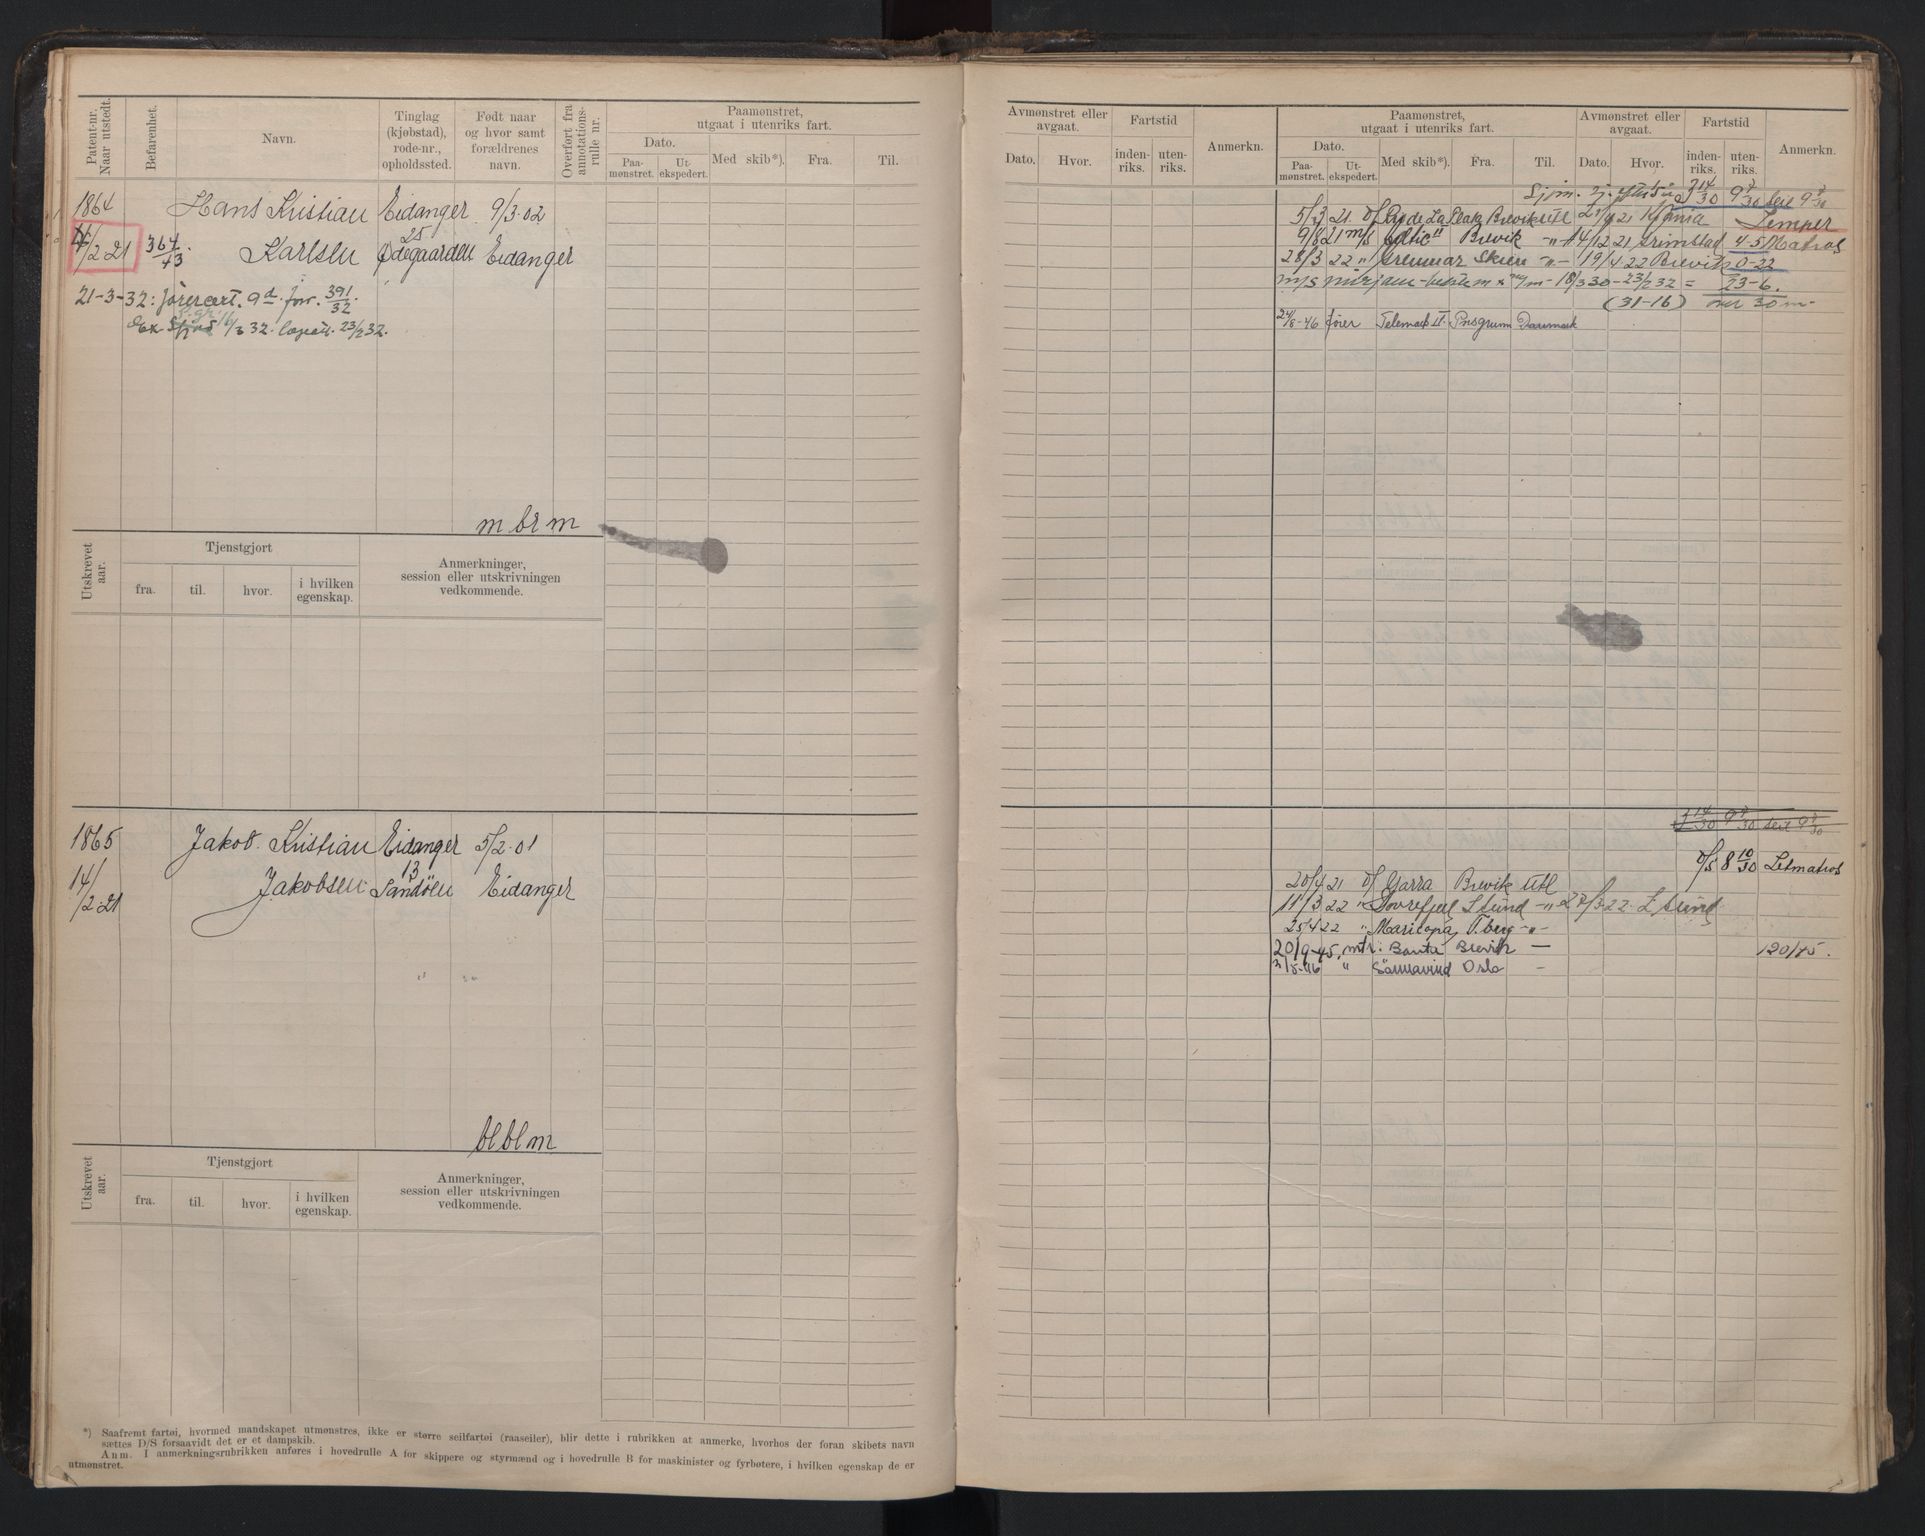 Patent-nr. Naar utstedt.
Befarenhet.
Navn.
Tinglag (kjøbstad), rode-nr., opholdssted.
Født naar og hvor samt forældrenes navn.
Overført fra annotations-rulle nr.
Paamønstret, utgaat i utenriks fart.
Dato.
Paa-mønstret.
Ut-ekspedert.
Med skib*).
Fra.
Til.
1864 Hans Kristian Eidanger 9/3.02
/2 21 364/43 Karlsen 25 Ødegaarden Eidanger
21-3-32: Førercert. 9d. for. 391/32
16/3 32. 23/2 32.
m br m
Utskrevet aar.
Tjenstgjort
fra.
til.
hvor.
i hvilken egenskap.
Anmerkninger, session eller utskrivningen vedkommende.
1865 Jakob Kristian Eidanger 5/2.01
14/2.21 Jakobsen 13 Sandöen Eidanger
bl bl m
Utskrevet aar.
Tjenstgjort
fra.
til.
hvor.
i hvilken egenskap.
Anmerkninger, session eller utskrivningen vedkommende.
*) Saafremt fartøi, hvormed mandskapet utmønstres, ikke er større seilfartøi (raaseiler), blir dette i rubrikken at anmerke, hvorhos der foran skibets navn
sættes D/S forsaavidt det er et dampskib.
Anm. I anmerkningsrubrikken anføres i hovedrulle A for skippere og styrmænd og i hovedrulle B for maskinister og fyrbøtere, i hvilken egenskap de er
utmønstret.
Avmønstret eller avgaat.
Dato.
Hvor.
Fartstid
inden-riks.
uten-riks.
Anmerkn.
Paamønstret, utgaat i utenriks fart.
Dato.
Paa-mønstret.
Ut-ekspedert.
Med skib*).
Fra.
Til.
Avmønstret eller avgaat.
Dato.
Hvor.
Fartstid
inden-riks.
uten-riks.
Anmerkn.
14/30 9 7/30 seil 9 7/30
5/3 21. Rio de La Plata Brevik Utl Kjemper
9/8 21 m/s Celtic Brevik -"- 14/12 21 Grimstad 4-5 Matros
28/3 22 " Grenmar Skien -"- 19/4 22 Brevik 0-22
m/s 18/3 30 - 23/2 32 = 23-6.
(31-16) over 30 m-
24/8-46 fører Telemark II Prsgrunn Danmark
14/30 9 7/30 seil 9 7/30
D/S 8 10/30 Letmatros
20/4 21 D/ Yarra Brevik Utl
11/3 22 " Dovrefjell L sund -"- 27/3.22. L sund
25/4 22 " Maricopa, T.berg -"-
20/9-45, mtr. Banta Brevik — 120/45.
3/5-46 " Sönnavind Oslo -